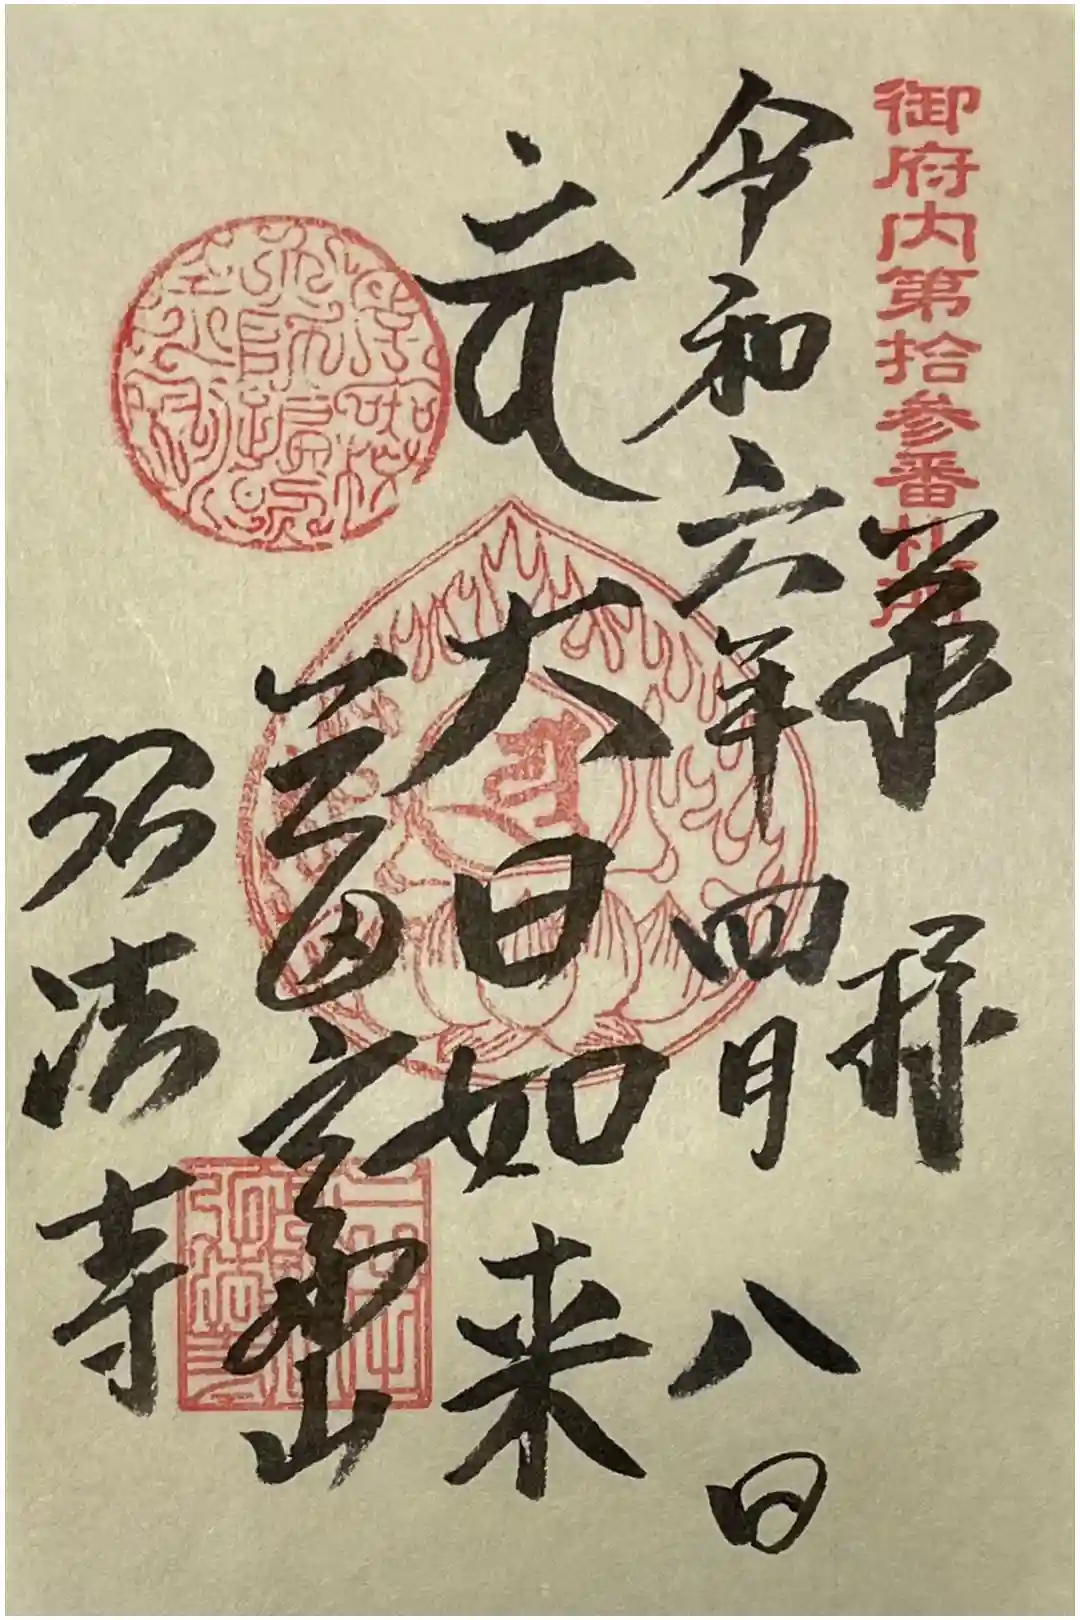 御府内第拾参番札所
奉拝
令和六年四月八日
大日如来
三田高野山
弘法寺